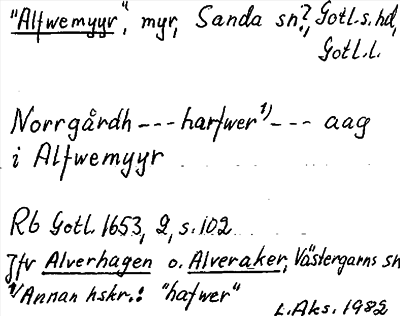 "Alfwemyyr", myr, Sanda sn?, Gotl.s. hd,
Gotl.l.
Norrgårdh --- harfwer ¹⁾ --- aag
i Alfwemyyr
Rb Gotl. 1653, 2, s. 102
Jfr Alverhagen o. Alveraker, Västergarns sn
¹⁾ Annan hskr.: "hafwer"
L. Aks. 1982